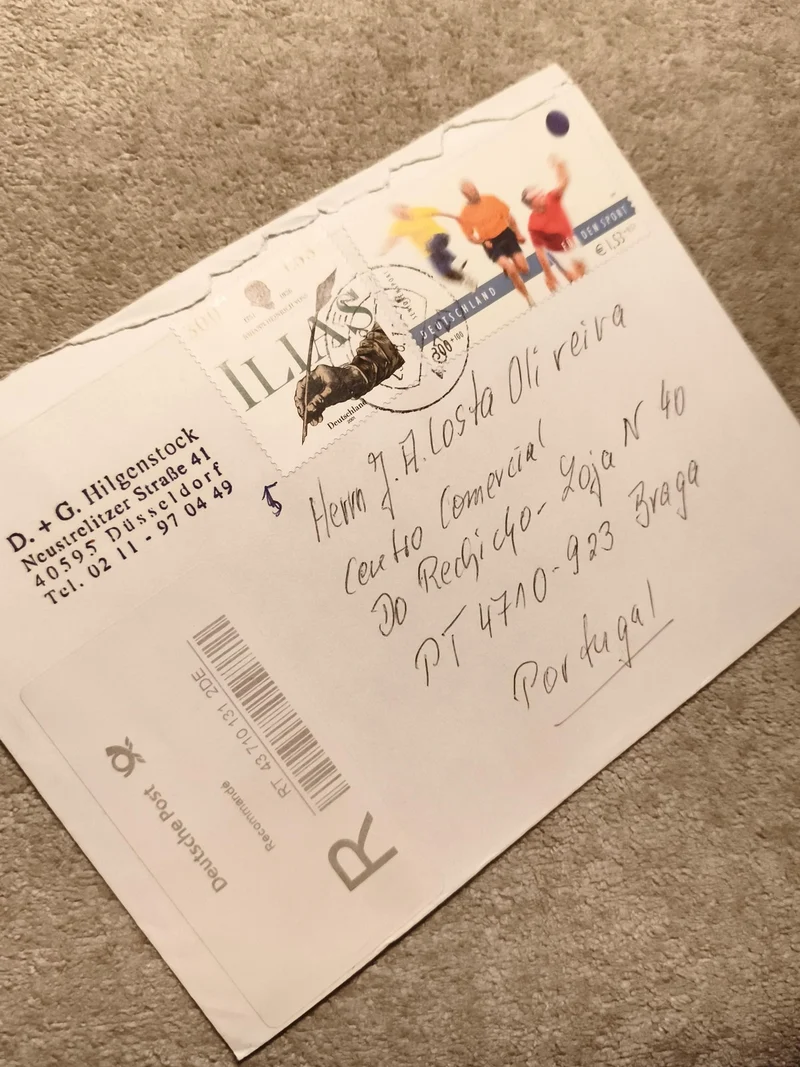 D. + G. Hilgenstock
Neustrelitzer Straße 41
40595 Düsseldorf
Tel. 02 11 - 97 04 49
ILIAS
Deutschland
DEUTSCHLAND
FÜR DEN SPORT
€ 1,53
300+100
Herrn J.A. Costa Oliveira
Centro Comercial
Do Rechicho - Loja N 40
PT 4710-923 Braga
Portugal
Deutsche Post
Recommandé
RT 43 710 131 2DE
R